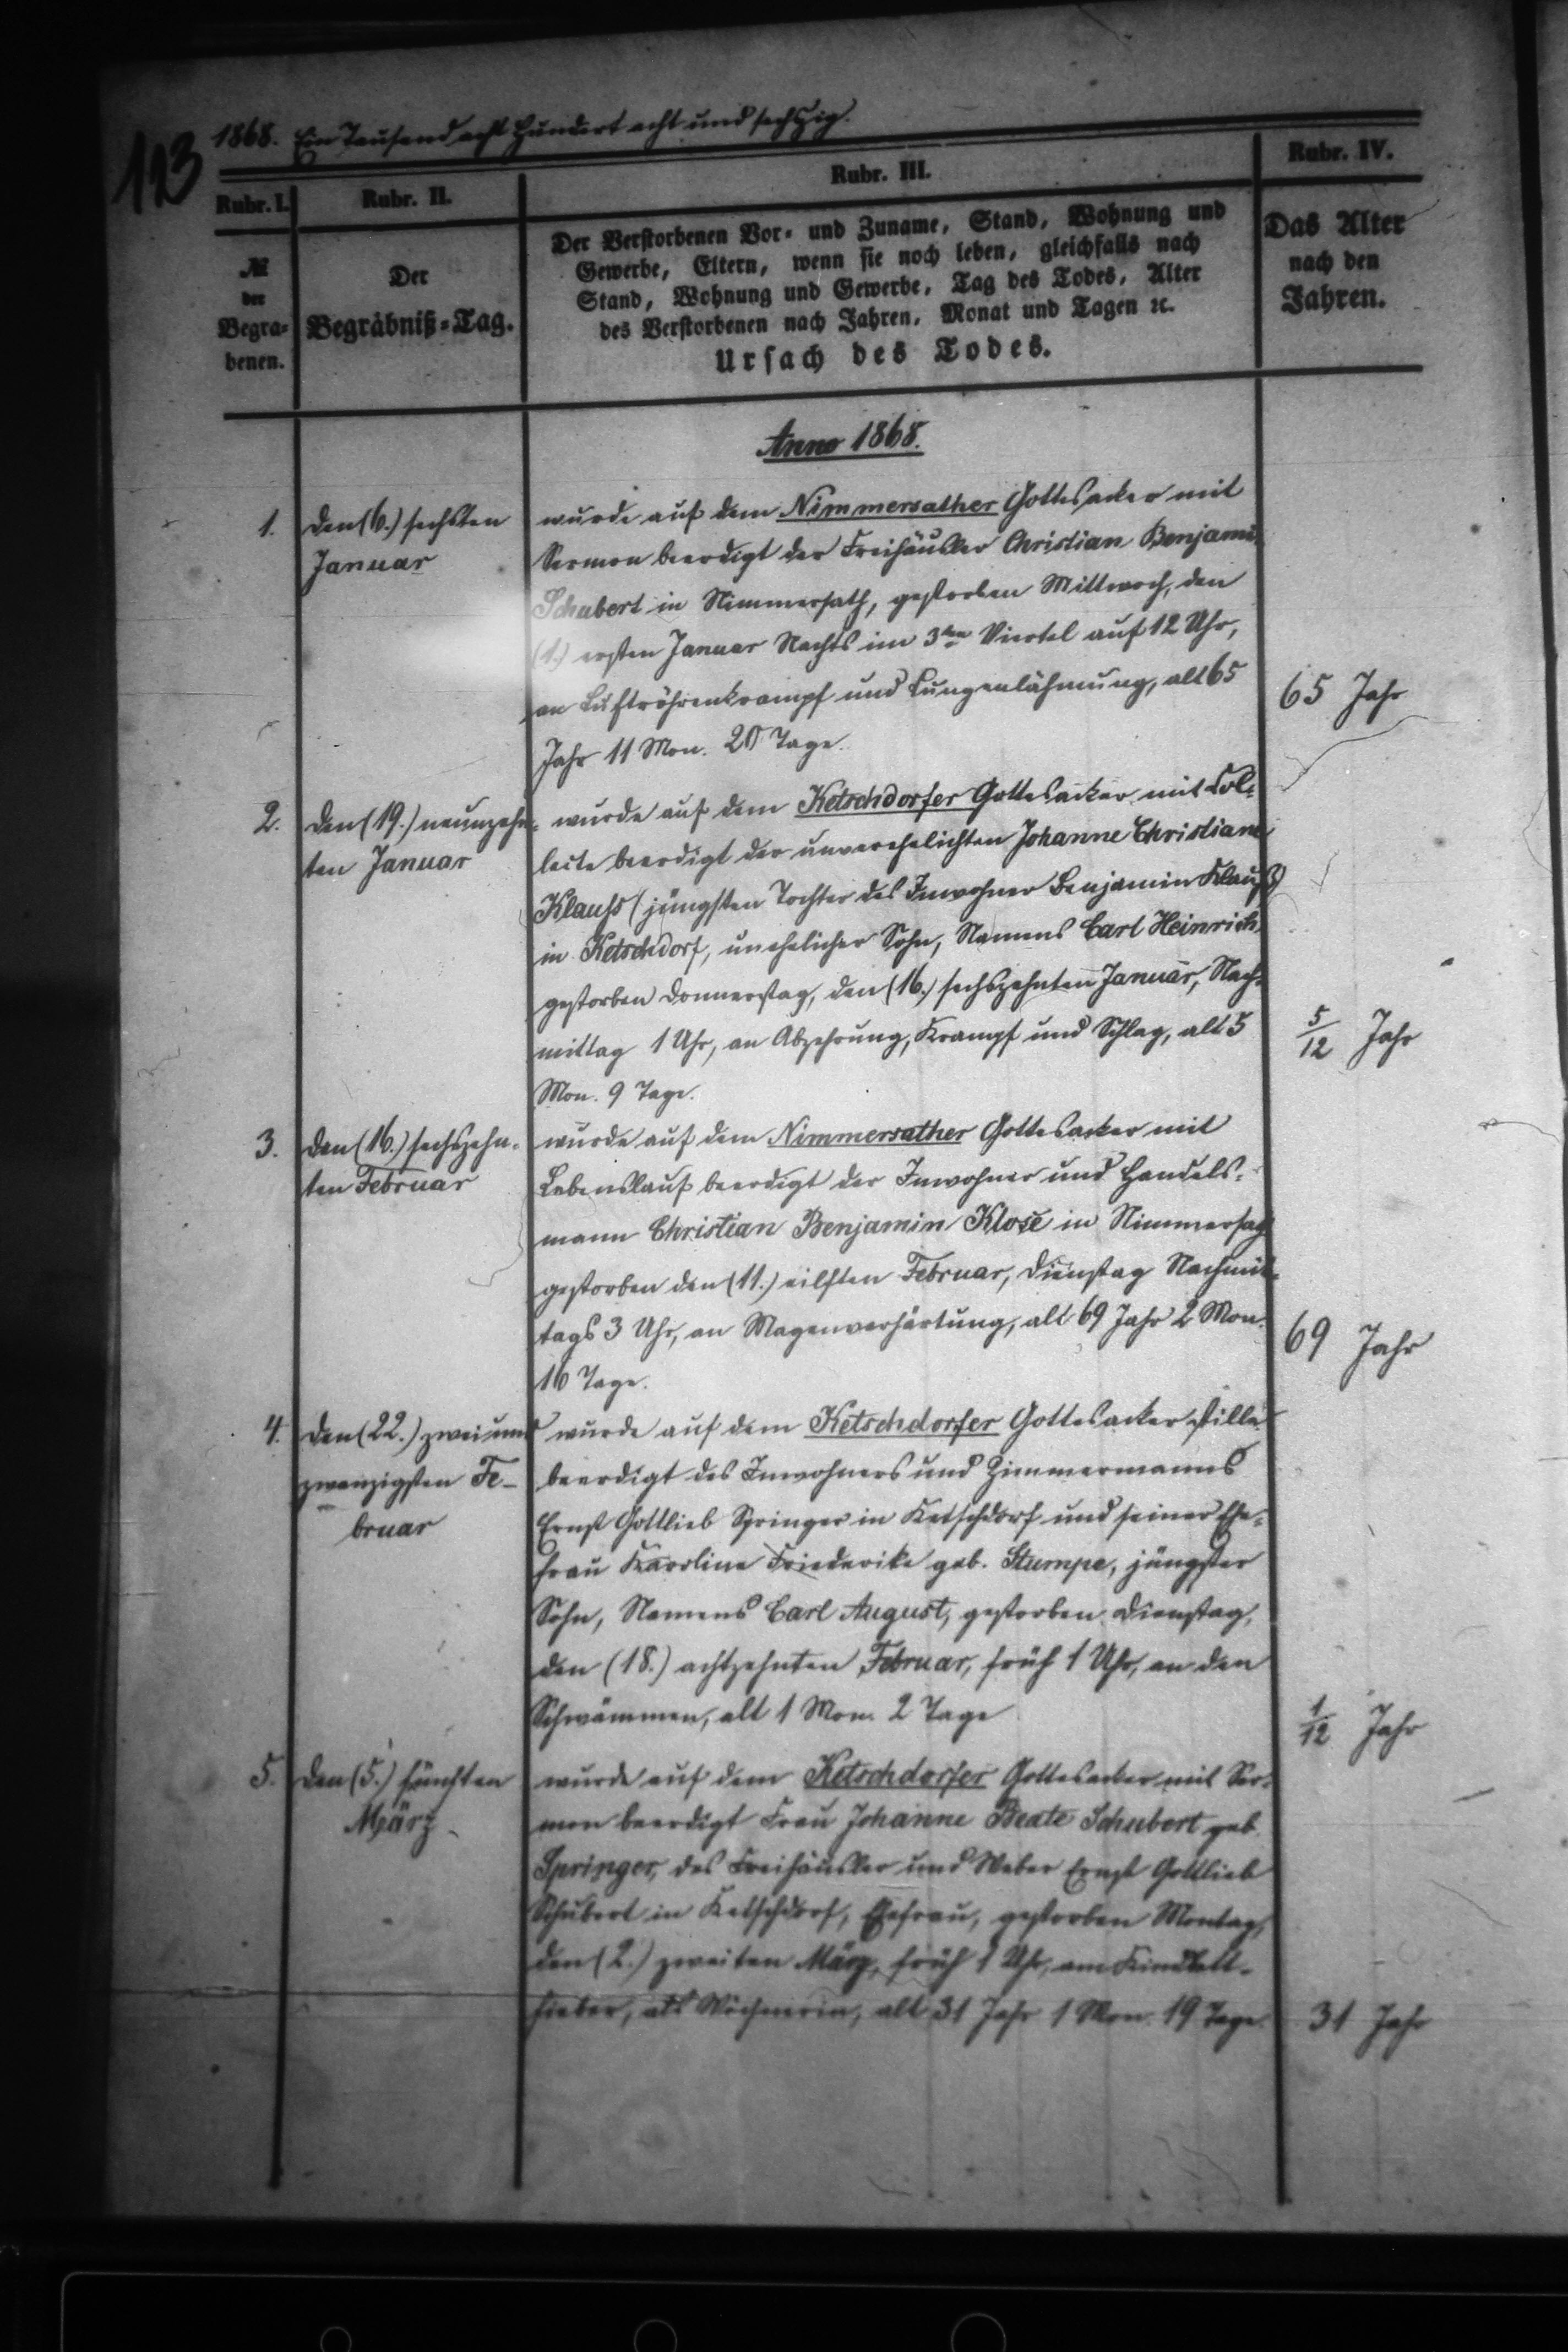 123
1868. Ein Tausend acht Hundert acht und sechszig.
Rubr. I.
Rubr. II.
Rubr. III.
Rubr. IV.
№
der
Begra=
benen.
Der
Begräbniß=Tag.
Der Verstorbenen Vor= und Zuname, Stand, Wohnung und
Gewerbe, Eltern, wenn sie noch leben, gleichfalls nach
Stand, Wohnung und Gewerbe, Tag des Todes, Alter
des Verstorbenen nach Jahren, Monat und Tagen ꝛc.
Ursach des Todes.
Das Alter
nach den
Jahren.
Anno 1868.
1.
den (6.) sechsten
Januar
wurde auf dem Nimmersather Gottesacker mit
Sermon beerdigt der Freihäusler Christian Benjamin
Schubert in Nimmersath, gestorben Mittwoch, den
(1.) ersten Januar Nachts im 3ten Viertel auf 12 Uhr,
an Luftröhrenkrampf und Lungenlähmung, alt 65
Jahr 11 Mon. 20 Tage.
65 Jahr
2.
den (19.) neunzehn=
ten Januar
wurde auf dem Ketschdorfer Gottesacker mit Col=
lecte beerdigt der unverehelichten Johanne Christiane
Klauss (jüngsten Tochter des Inwohner Benjamin Klauß)
in Ketschdorf, unehelicher Sohn, Namens Carl Heinrich,
gestorben Donnerstag, den (16.) sechszehnten Januar, Nach=
mittag 1 Uhr, an Abzehrung, Krampf und Schlag, alt 5
Mon. 9 Tage.
5/12 Jahr
3.
den (16.) sechszehn=
ten Februar
wurde auf dem Nimmersather Gottesacker mit
Lebenslauf beerdigt der Inwohner und Handels=
mann Christian Benjamin Klose in Nimmersath
gestorben den (11.) eilften Februar, Dienstag Nachmit=
tags 3 Uhr, an Magenverhärtung, alt 69 Jahr 2 Mon.
16 Tage.
69 Jahr
4.
den (22.) zwei und
zwanzigsten Fe-
bruar
wurde auf dem Ketschdorfer Gottesacker stille
beerdigt des Inwohners und Zimmermanns
Ernst Gottlieb Springer in Ketschdorf und seiner Ehe=
frau Karoline Friederike geb. Stumpe, jüngster
Sohn, Namens Carl August, gestorben Dienstag,
den (18.) achtzehnten Februar, früh 1 Uhr, an den
Schwämmen, alt 1 Mon. 2 Tage
1/12 Jahr
5.
den (5.) fünften
März
wurde auf dem Ketschdorfer Gottesacker mit Ser=
mon beerdigt Frau Johanne Beate Schubert geb.
Springer, des Freihäusler und Weber Ernst Gottlieb
Schubert in Ketschdorf, Ehefrau, gestorben Montag,
den (2.) zweiten März, früh 1 Uhr, am Kindbett-
fieber, als Wöchnerin, alt 31 Jahr 1 Mon. 19 Tage.
31 Jahr